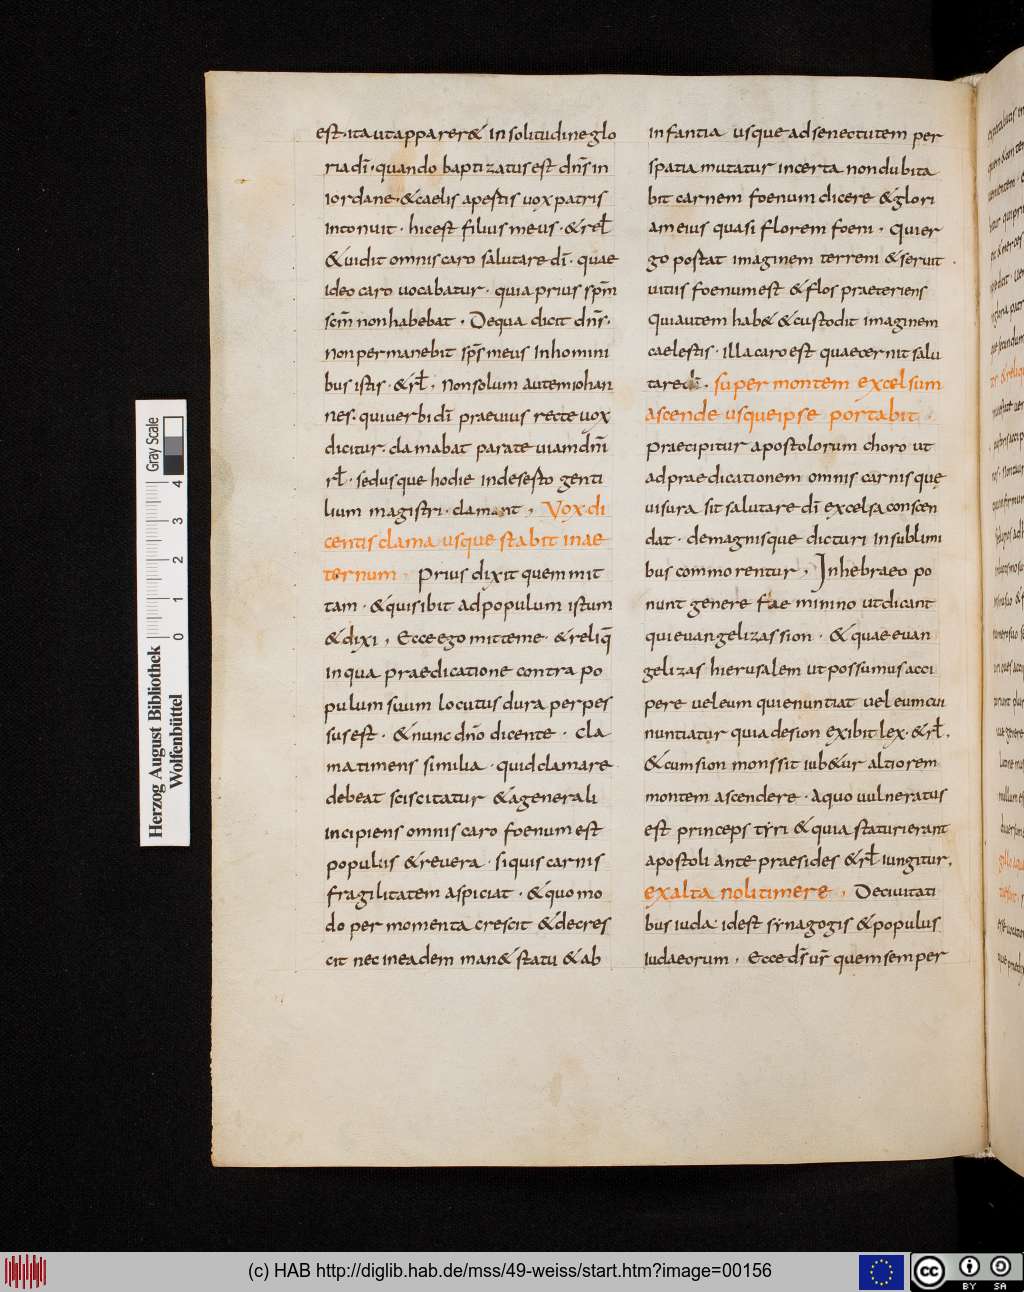 est· ita ut apparer& in solitudine glo
ria di· quando baptizatus est dns in
iordane· & caelis apertis uox patris
intonuit· hic est filius meus· & rel
& uidit omnis caro salutare di· quae
ideo caro uocabatur· quia prius spm
scm non habebat· De qua dicit dns·
non permanebit sps meus in homini
bus istis· & rl· non solum autem iohan
nes· qui uerbi di praeuius recte uox
dicitur· clamabat parate uiam dni
rl· sed usque hodie in deserto genti
lium magistri· clamant· Vox di
centis clama usque stabit in ae
ternum· Prius dixit quem mit
tam· & quis ibit ad populum istum
& dixi, Ecce ego mitte me· & reliq
in qua praedicatione contra po
pulum suum locutus dura perpes
sus est· & nunc dno dicente· cla
ma timens similia· quid clamare
debeat sciscitatur & a generali
incipiens omnis caro foenum est
populus & reuera· si quis carnis
fragilitatem aspiciat· & quo mo
do per momenta crescit & decres
cit nec in eadem man& statu & ab
infantia usque ad senectutem per
spatia mutatur incerta non dubita
bit carnem foenum dicere & glori
am eius quasi florem foeni· Qui er
go portat imaginem terreni & seruit
uitiis foenum est & flos praeteriens
Qui autem hab& & custodit imaginem
caelestis· illa caro est quae cernit salu
tare di· super montem excelsum
ascende usque ipse portabit·
Praecipitur apostolorum choro ut
ad praedicationem omnis carnis que
uisura sit salutare di excelsa conscen
dat· de magnisque dicturi in subblimi
bus commorentur, In hebraeo po
nunt genere feminino ut dicant
qui euangelizas sion· & quae euan
gelizas hierusalem ut possumus acci
pere uel eum qui enuntiat uel eum cui
nuntiatur quia de sion exibit lex· & rl,
& cum sion mons sit iub&ur altiorem
montem ascendere· a quo uulneratus
est princeps tyri & quia staturi erant
apostoli ante praesides & rl iungitur,
exalta noli timere, De ciuitati
bus iuda· id est synagogis & populus
iudaeorum, Ecce ds ur quem semper
Herzog August Bibliothek
Wolfenbüttel
0 1 2 3 4
Gray Scale
(c) HAB http://diglib.hab.de/mss/49-weiss/start.htm?image=00156
cc BY SA